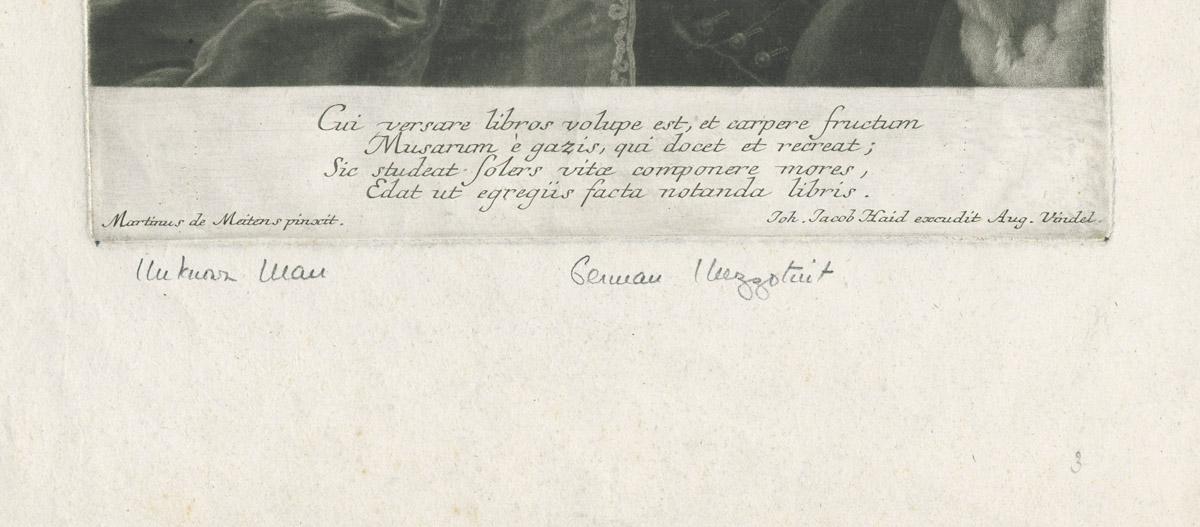 Cui versare libros volupe est, et carpere fructum
Musarum è gazis, qui docet et recreat;
Sic studeat solers vitæ componere mores,
Edat ut egregiis facta notanda libris.
Martinus de Meitens pinxit.
Joh. Jacob Haid excudit Aug. Vindel.
Unknown Man
German Mezzotint
3